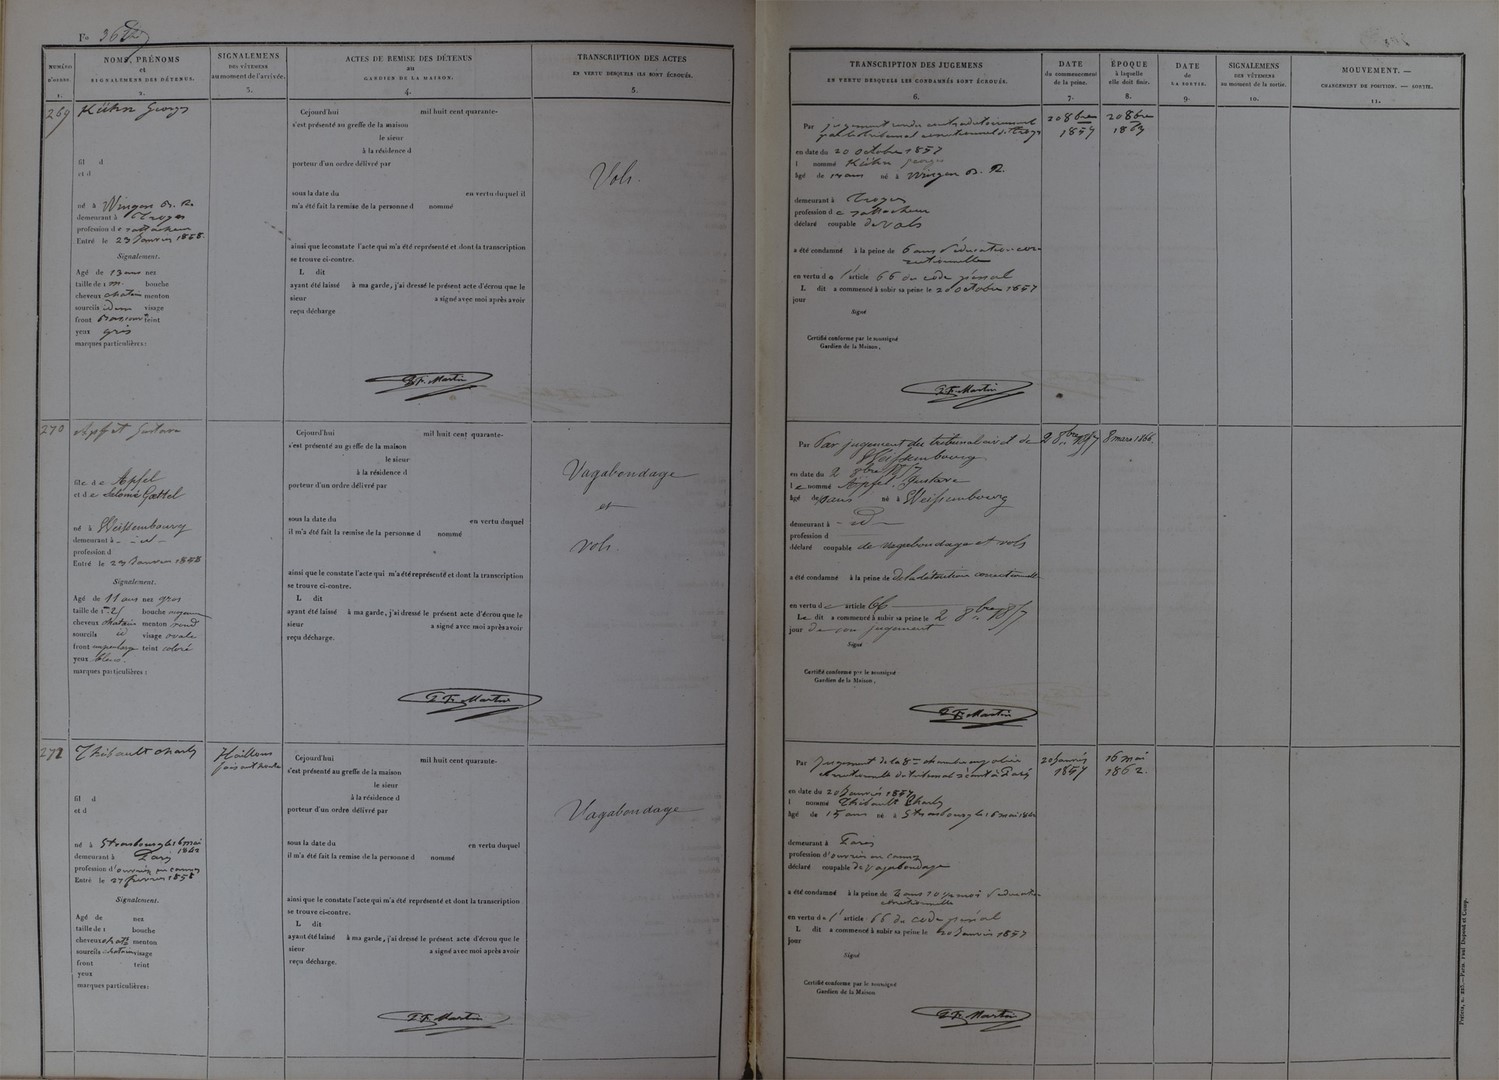 Fo
NUMÉRO D'ORDRE. 1.
NOMS, PRÉNOMS et SIGNALEMENT DES DÉTENUS. 2.
SIGNALEMENS DES VÊTEMENS au moment de l'arrivée. 3.
ACTES DE REMISE DES DÉTENUS au GARDIEN DE LA MAISON. 4.
TRANSCRIPTION DES ACTES EN VERTU DESQUELS ILS SONT ÉCROUÉS. 5.
TRANSCRIPTION DES JUGEMENS EN VERTU DESQUELS LES CONDAMNÉS SONT ÉCROUÉS. 6.
DATE du commencement de la peine. 7.
ÉPOQUE à laquelle elle doit finir. 8.
DATE de LA SORTIE. 9.
SIGNALEMENS DES VÊTEMENS au moment de la sortie. 10.
MOUVEMENT. — CHANGEMENT DE POSITION. — SORTIE. 11.
269
Kühn Georges
fil d
et d
né à Wingen B. R.
demeurant à Troyes
profession de rattacheur
Entré le 23 Janvier 1858.
Signalement.
Agé de 13 ans nez
taille de 1 m. bouche
cheveux chatain menton
sourcils idem visage
front teint
yeux gris
marques particulières :
Cejourd'hui mil huit cent quarante-
s'est présenté au greffe de la maison
le sieur
à la résidence d
porteur d'un ordre délivré par
sous la date du en vertu duquel il
m'a été fait la remise de la personne d nommé
ainsi que le constate l'acte qui m'a été représenté et dont la transcription
se trouve ci-contre.
L dit
ayant été laissé à ma garde, j'ai dressé le présent acte d'écrou que le
sieur a signé avec moi après avoir
reçu décharge
Martin
Vols.
Par jugement rendu
par le tribunal correctionnel de Troyes
en date du 20 octobre 1857
l nommé Kühn Georges
âgé de 12 ans né à Wingen B. R.
demeurant à Troyes
profession de rattacheur
déclaré coupable de vols
a été condamné à la peine de 6 ans d'éducation cor-
rectionnelle
en vertu de l'article 66 du code pénal
L dit a commencé à subir sa peine le 20 octobre 1857
jour
Signé
Certifié conforme par le soussigné
Gardien de la Maison.
Martin
20 8bre 1857
20 8bre 1863
270
Apfel Gustave
fils de Apfel
et de Salomé Gattel
né à Weissembourg
demeurant à - id -
profession d
Entré le 23 Janvier 1858
Signalement.
Agé de 11 ans nez gros
taille de bouche moyenne
cheveux chatain menton rond
sourcils id visage ovale
front teint coloré
yeux bleus.
marques particulières :
Cejourd'hui mil huit cent quarante-
s'est présenté au greffe de la maison
le sieur
à la résidence d
porteur d'un ordre délivré par
sous la date du en vertu duquel
il m'a été fait la remise de la personne d nommé
ainsi que le constate l'acte qui m'a été représenté et dont la transcription
se trouve ci-contre.
L dit
ayant été laissé à ma garde, j'ai dressé le présent acte d'écrou que le
sieur a signé avec moi après avoir
reçu décharge.
Martin
Vagabondage
et
vols
Par Par jugement du tribunal civil de
Weissembourg
en date du 2 8bre 1857
le nommé Apfel Gustave
âgé de ans né à Weissembourg
demeurant à - id -
profession d
déclaré coupable de vagabondage et vols
a été condamné à la peine de de la détention correctionnelle
en vertu de article 66
Le dit a commencé à subir sa peine le 2 8bre 1857
jour de son jugement
Signé
Certifié conforme par le soussigné
Gardien de la Maison.
Martin
2 8bre 1857
8 mars 1866.
271
Thibault Charles
Haillons
fil d
et d
né à Strasbourg le 16 mai 1842
demeurant à Paris
profession d'ouvrier en
Entré le 27 février 1858
Signalement.
Agé de nez
taille de 1 bouche
cheveux chat. menton
sourcils chatain visage
front teint
yeux
marques particulières :
Cejourd'hui mil huit cent quarante-
s'est présenté au greffe de la maison
le sieur
à la résidence d
porteur d'un ordre délivré par
sous la date du en vertu duquel
il m'a été fait la remise de la personne d nommé
ainsi que le constate l'acte qui m'a été représenté et dont la transcription
se trouve ci-contre.
L dit
ayant été laissé à ma garde, j'ai dressé le présent acte d'écrou que le
sieur a signé avec moi après avoir
reçu décharge.
Martin
Vagabondage
Par Jugement de la 8me chambre police
correctionnelle du tribunal séant à Paris
en date du 20 Janvier 1857
l nommé Thibault Charles
âgé de 15 ans né à Strasbourg le 16 mai 1842
demeurant à Paris
profession d'ouvrier en
déclaré coupable de vagabondage
a été condamné à la peine de d'éducation
correctionnelle
en vertu de l'article 66 du code pénal
L dit a commencé à subir sa peine le 20 Janvier 1857
jour
Signé
Certifié conforme par le soussigné
Gardien de la Maison
Martin
20 Janvier 1857
16 mai 1862.